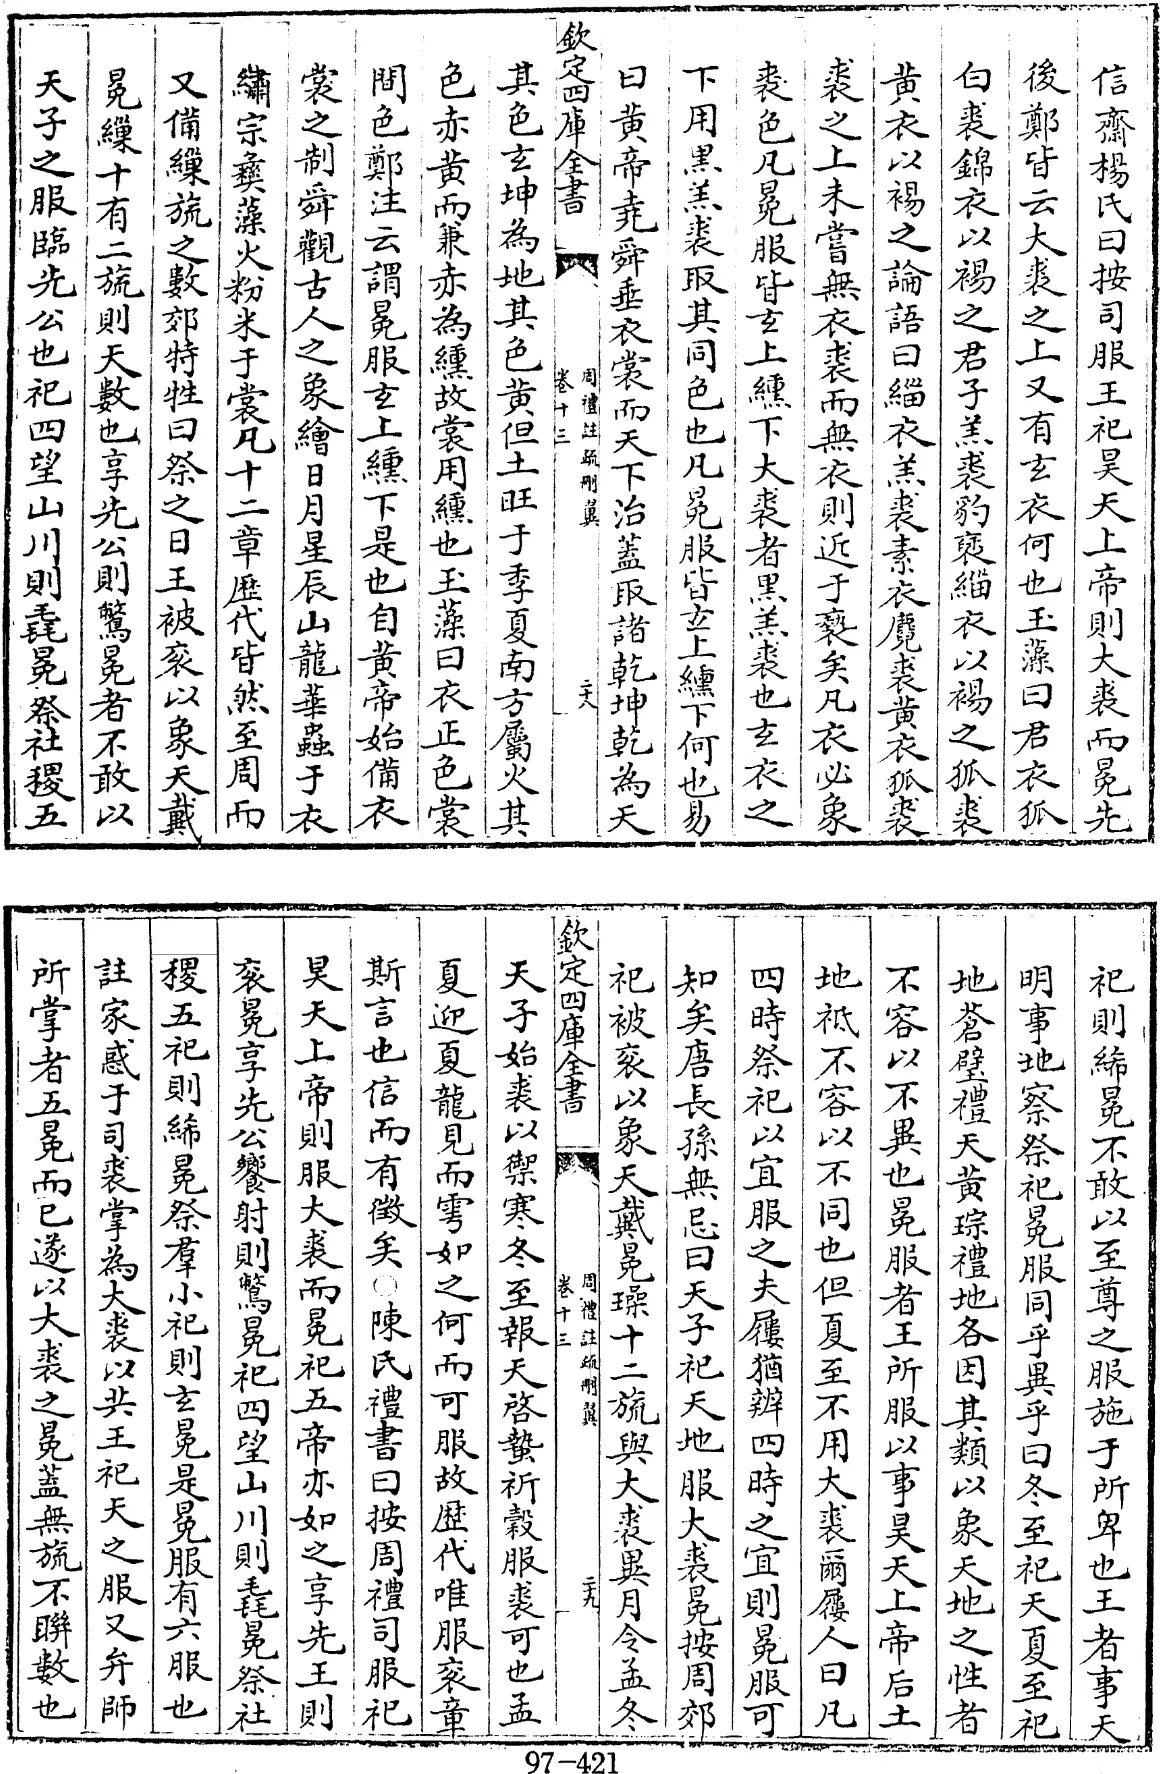 信齋楊氏曰按司服王祀昊天上帝則大裘而冕先
後鄭皆云大裘之上又有玄衣何也玉藻曰君衣狐
白裘錦衣以裼之君子羔裘豹褎緇衣以裼之狐裘
黃衣以裼之論語曰緇衣羔裘素衣麑裘黃衣狐裘
裘之上未嘗無衣裘而無衣則近于褻矣凡衣必象
裘色凡冕服皆玄上纁下大裘者黑羔裘也玄衣之
下用黑羔裘取其同色也凡冕服皆玄上纁下何也易
曰黃帝堯舜垂衣裳而天下治蓋取諸乾坤乾為天
欽定四庫全書
周禮註疏刪翼
卷十三
二十八
其色玄坤為地其色黃但土旺于季夏南方屬火其
色赤黃而兼赤為纁故裳用纁也玉藻曰衣正色裳
間色鄭注云謂冕服玄上纁下是也自黃帝始備衣
裳之制舜觀古人之象繪日月星辰山龍華蟲于衣
繡宗彝藻火粉米于裳凡十二章歷代皆然至周而
又備繅旒之數郊特牲曰祭之日王被袞以象天戴
冕繅十有二旒則天數也享先公則鷩冕者不敢以
天子之服臨先公也祀四望山川則毳冕祭社稷五
祀則絺冕不敢以至尊之服施于所卑也王者事天
明事地察祭祀冕服同乎異乎曰冬至祀天夏至祀
地蒼璧禮天黃琮禮地各因其類以象天地之性者
不容以不異也冕服者王所服以事昊天上帝后土
地祇不容以不同也但夏至不用大裘爾屨人曰凡
四時祭祀以宜服之夫屨猶辨四時之宜則冕服可
知矣唐長孫無忌曰天子祀天地服大裘冕按周郊
祀被袞以象天戴冕璪十二旒與大裘異月令孟冬
欽定四庫全書
周禮註疏刪翼
卷十三
二十九
天子始裘以禦寒冬至報天啓蟄祈穀服裘可也孟
夏迎夏龍見而雩如之何而可服故歷代唯服袞章
斯言也信而有徵矣○陳氏禮書曰按周禮司服祀
昊天上帝則服大裘而冕祀五帝亦如之享先王則
袞冕享先公饗射則鷩冕祀四望山川則毳冕祭社
稷五祀則絺冕祭羣小祀則玄冕是冕服有六服也
註家惑于司裘掌為大裘以共王祀天之服又弁師
所掌者五冕而已遂以大裘之冕蓋無旒不聯數也
97-421